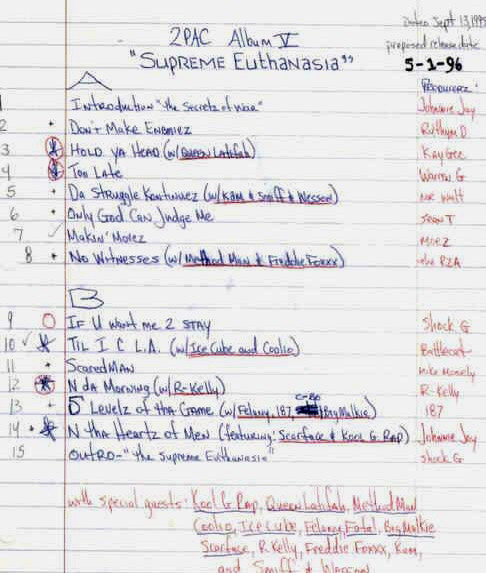 Dated Sept 13, 1995
2PAC Album V
proposed release date
"SUPREME EuthANASIA"
5-1-96
A
PRODUCERZ:
1 Introduction "the secretz of war" Johnnie Jay
2 DON't MAKE ENEMIEZ Rhythm D
3 HOLD YA HEAD (w/ QUEEN LAtifAh) KAY GEE
4 Too LAte Warren G
5 DA Struggle Kontinuez (w/ KAM & Smiff & Wessen)
6 Only God CAN Judge Me JEAN T
7 MAkin' Movez MOEZ
8 NO WitNESSES (w/ Method MAN & Freddie Foxxx) RZA
B
9 IF U WANt ME 2 STAY Shock G
10 TIL I C L.A. (w/ Ice Cube and Coolio) Battlecat
11 SCAREDMAN Mike Mosely
12 N dA Morning (w/ R-Kelly) R-Kelly
13 5 Levelz of thA GAme (w/ Felony, 187, C-BO Big Malkie) 187
14 N thA Heartz of MEN (featuring: Scarface & KOOL G RAP) Johnnie Jay
15 OUTRO - "the supreme EuthanAsia" shock G
with special guests: Kool G Rap, Queen Latifah, Method Man
Coolio, Ice Cube, Felony, Fatal, Big Malkie
Scarface, R Kelly, Freddie Foxxx, Kam,
and Smiff & Wesson